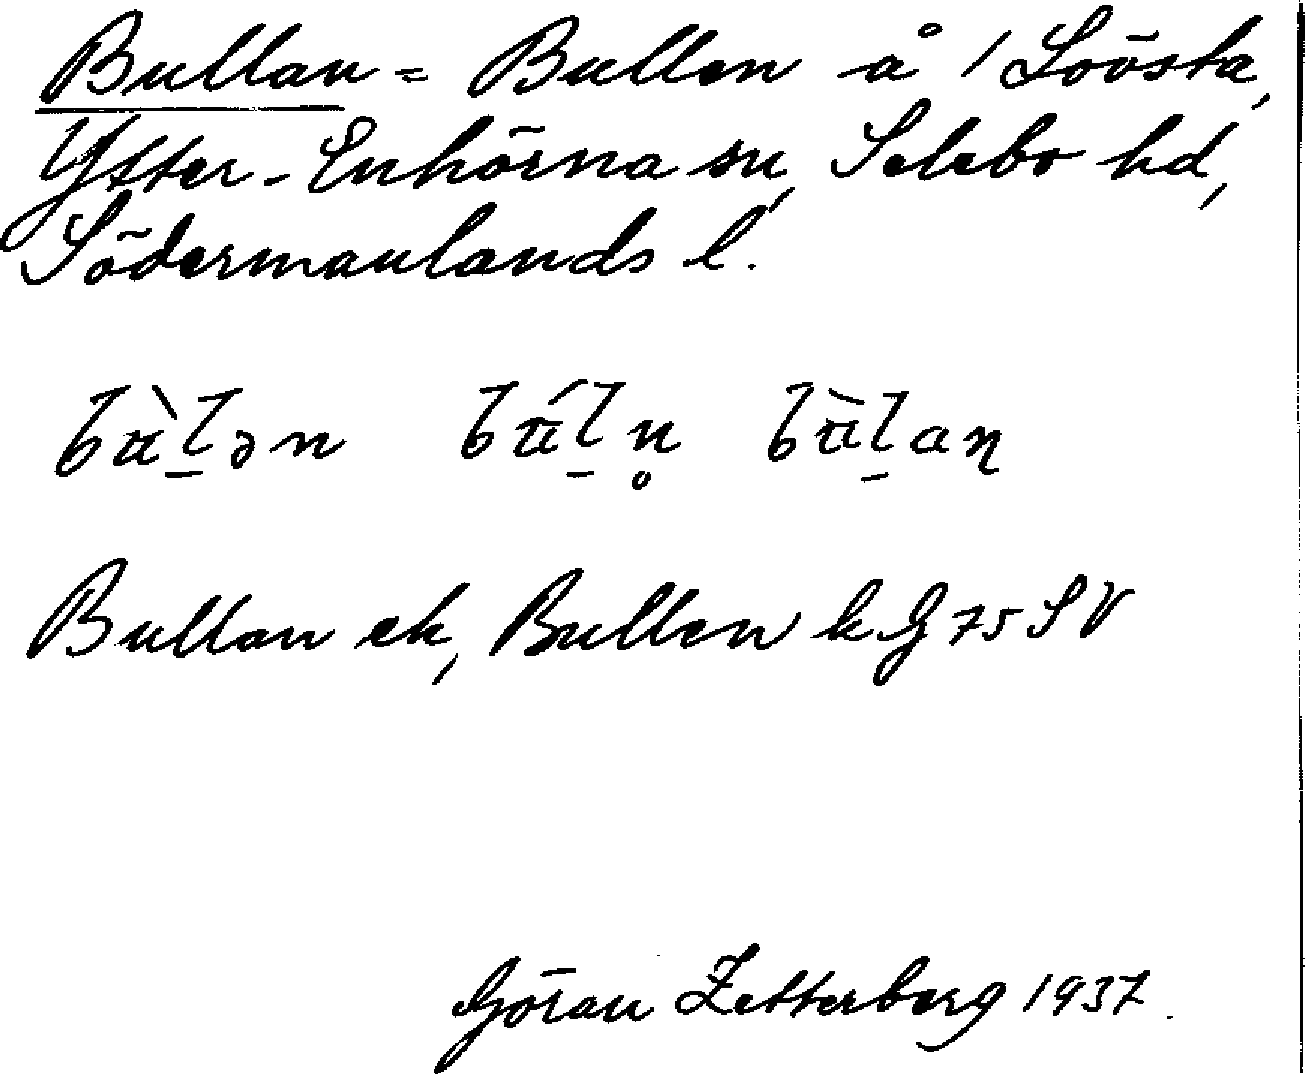 Bullan = Bullen å 1 Lövsta,
Ytter-Enhörna sn, Selebo hd,
Södermanlands l.
Bullan ek, Bullen k G 75 SV
Göran Zetterberg 1937.